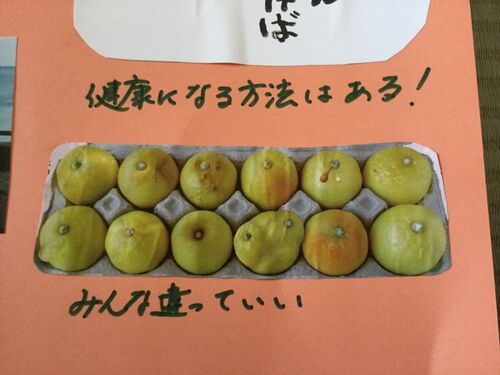 ば
健康になる方法はある!
みんな違っていい